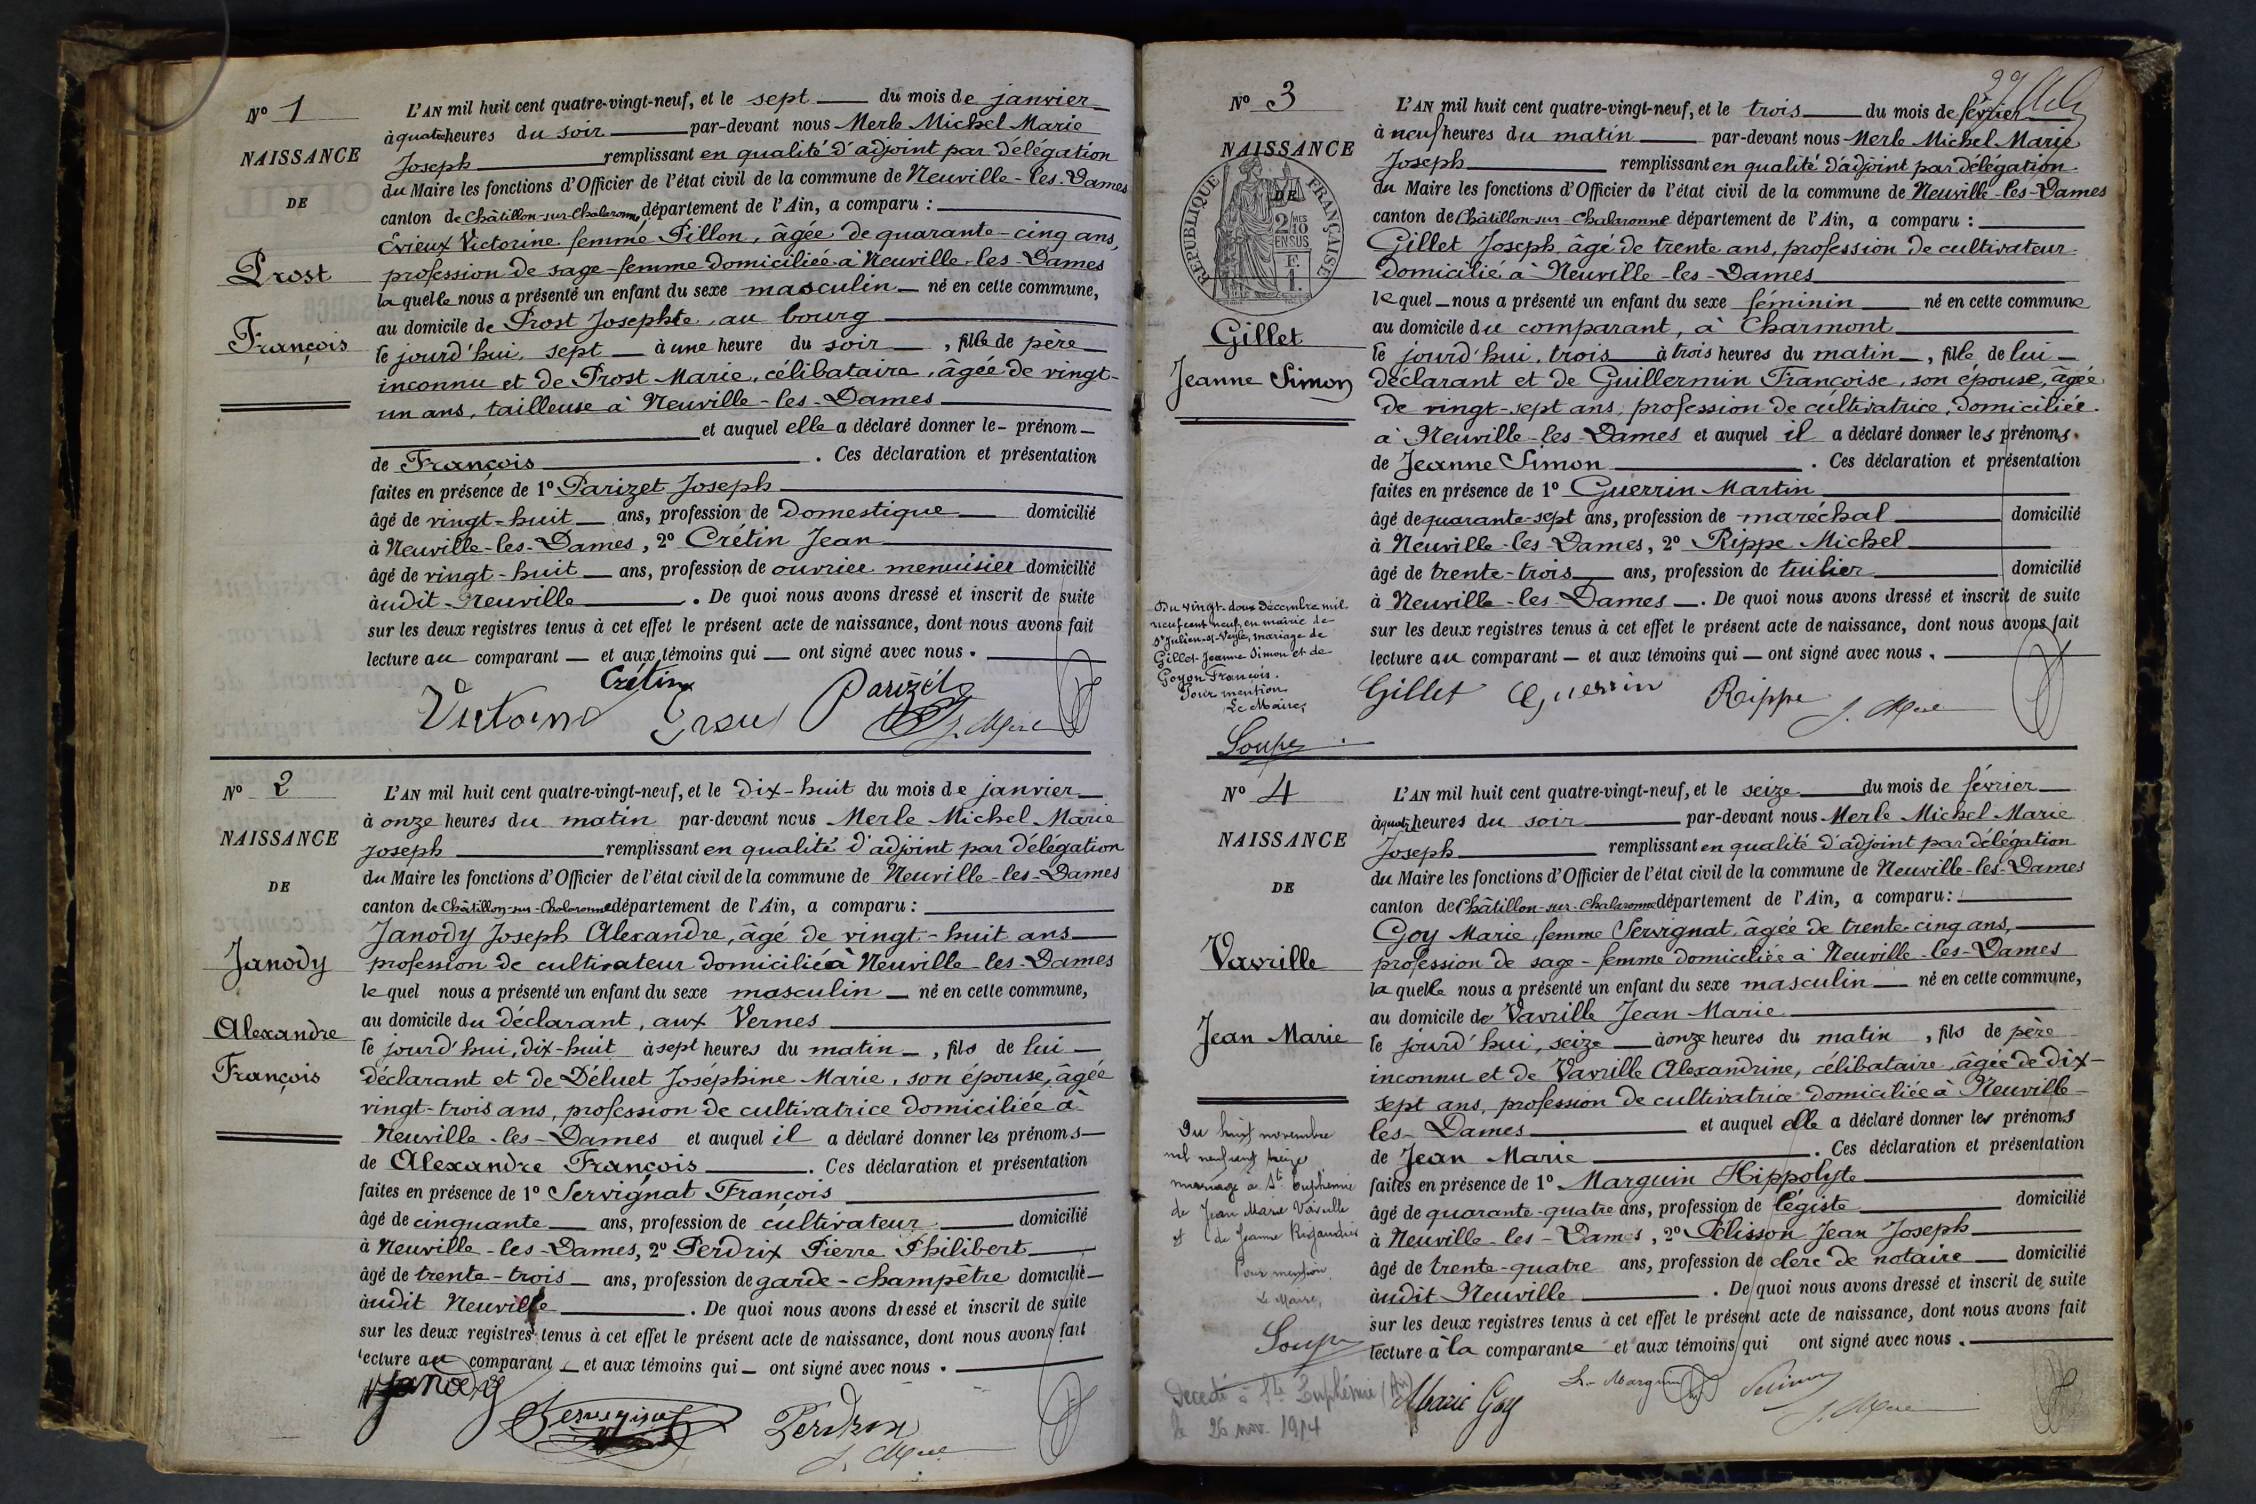 N° 1
NAISSANCE
DE
Prost
François
L'AN mil huit cent quatre-vingt-neuf, et le sept du mois de janvier
à quatre heures du soir par-devant nous Merle Michel Marie
Joseph remplissant en qualité d'adjoint par délégation
du Maire les fonctions d'Officier de l'état civil de la commune de Neuville-les-Dames
canton de Châtillon-sur-Chalaronne, département de l'Ain, a comparu :
Evieux Victorine femme Pillon, âgée de quarante-cinq ans,
profession de sage-femme domiciliée à Neuville-les-Dames
laquelle nous a présenté un enfant du sexe masculin né en cette commune,
au domicile de Prost Josephte, au bourg
le jourd'hui, sept à une heure du soir, fils de père
inconnu et de Prost Marie, célibataire, âgée de vingt-
un ans, tailleuse à Neuville-les-Dames
et auquel elle a déclaré donner le prénom
de François. Ces déclaration et présentation
faites en présence de 1° Parizet Joseph
âgé de vingt-huit ans, profession de domestique domicilié
à Neuville-les-Dames, 2° Crétin Jean
âgé de vingt-huit ans, profession de ouvrier menuisier domicilié
àudit Neuville. De quoi nous avons dressé et inscrit de suite
sur les deux registres tenus à cet effet le présent acte de naissance, dont nous avons fait
lecture au comparant et aux témoins qui ont signé avec nous.
Crétin Parizet
J. Merle
N° 2
NAISSANCE
DE
Janody
Alexandre
François
L'AN mil huit cent quatre-vingt-neuf, et le dix-huit du mois de janvier
à onze heures du matin par-devant nous Merle Michel Marie
Joseph remplissant en qualité d'adjoint par délégation
du Maire les fonctions d'Officier de l'état civil de la commune de Neuville-les-Dames
canton de Châtillon-sur-Chalaronne département de l'Ain, a comparu :
Janody Joseph Alexandre, âgé de vingt-huit ans
profession de cultivateur domicilié à Neuville-les-Dames
lequel nous a présenté un enfant du sexe masculin né en cette commune,
au domicile du déclarant, aux Vernes
le jourd'hui, dix-huit à sept heures du matin, fils de lui
déclarant et de Déluet Joséphine Marie, son épouse, âgée
vingt-trois ans, profession de cultivatrice domiciliée à
Neuville-les-Dames et auquel il a déclaré donner les prénoms
de Alexandre François. Ces déclaration et présentation
faites en présence de 1° Servignat François
âgé de cinquante ans, profession de cultivateur domicilié
à Neuville-les-Dames, 2° Perdrix Pierre Philibert
âgé de trente-trois ans, profession de garde-champêtre domicilié
àudit Neuville. De quoi nous avons dressé et inscrit de suite
sur les deux registres tenus à cet effet le présent acte de naissance, dont nous avons fait
lecture au comparant et aux témoins qui ont signé avec nous.
Janody
Servignat Perdrix
J. Merle
N° 3
NAISSANCE
DE
RÉPUBLIQUE FRANÇAISE
2/10
EN SUS
Gillet
Jeanne Simon
Du vingt-deux décembre mil
neuf cent neuf, en mairie de
St Julien-s-Veyle, mariage de
Gillet Jeanne Simon et de
Goyon François.
Pour mention
Le Maire,
Soupe
L'AN mil huit cent quatre-vingt-neuf, et le trois du mois de février
à neuf heures du matin par-devant nous Merle Michel Marie
Joseph remplissant en qualité d'adjoint par délégation
du Maire les fonctions d'Officier de l'état civil de la commune de Neuville-les-Dames
canton de Châtillon-sur-Chalaronne département de l'Ain, a comparu :
Gillet Joseph âgé de trente ans, profession de cultivateur
domicilié à Neuville-les-Dames
lequel nous a présenté un enfant du sexe féminin né en cette commune
au domicile du comparant, à Charmont
le jourd'hui, trois à trois heures du matin, fille de lui
déclarant et de Guillermin Françoise, son épouse, âgée
de vingt-sept ans, profession de cultivatrice, domiciliée
à Neuville-les-Dames et auquel il a déclaré donner les prénoms
de Jeanne Simon. Ces déclaration et présentation
faites en présence de 1° Guerrin Martin
âgé de quarante-sept ans, profession de maréchal domicilié
à Neuville-les-Dames, 2° Rippe Michel
âgé de trente-trois ans, profession de tuilier domicilié
à Neuville-les-Dames. De quoi nous avons dressé et inscrit de suite
sur les deux registres tenus à cet effet le présent acte de naissance, dont nous avons fait
lecture au comparant et aux témoins qui ont signé avec nous.
Gillet Guerrin Rippe J. Merle
N° 4
NAISSANCE
DE
Vavrille
Jean Marie
Du huit novembre
mil neuf cent treize
mariage à Ste Euphémie
de Jean Marie Vavrille
et de Jeanne Rigaudier
Pour mention
Le Maire,
Soupe
Décédé à Ste Euphémie (Ain)
le 26 nov. 1914
L'AN mil huit cent quatre-vingt-neuf, et le seize du mois de février
à quatre heures du soir par-devant nous Merle Michel Marie
Joseph remplissant en qualité d'adjoint par délégation
du Maire les fonctions d'Officier de l'état civil de la commune de Neuville-les-Dames
canton de Châtillon-sur-Chalaronne département de l'Ain, a comparu :
Goy Marie, femme Servignat, âgée de trente-cinq ans,
profession de sage-femme domiciliée à Neuville-les-Dames
laquelle nous a présenté un enfant du sexe masculin né en cette commune,
au domicile de Vavrille Jean Marie
le jourd'hui, seize à onze heures du matin, fils de père
inconnu et de Vavrille Alexandrine, célibataire, âgée de dix-
sept ans, profession de cultivatrice domiciliée à Neuville-
les-Dames et auquel elle a déclaré donner les prénoms
de Jean Marie. Ces déclaration et présentation
faites en présence de 1° Marguin Hippolyte
âgé de quarante-quatre ans, profession de légiste domicilié
à Neuville-les-Dames, 2° Pélisson Jean Joseph
âgé de trente-quatre ans, profession de clerc de notaire domicilié
àudit Neuville. De quoi nous avons dressé et inscrit de suite
sur les deux registres tenus à cet effet le présent acte de naissance, dont nous avons fait
lecture à la comparante et aux témoins qui ont signé avec nous.
Marie Goy
J. Merle